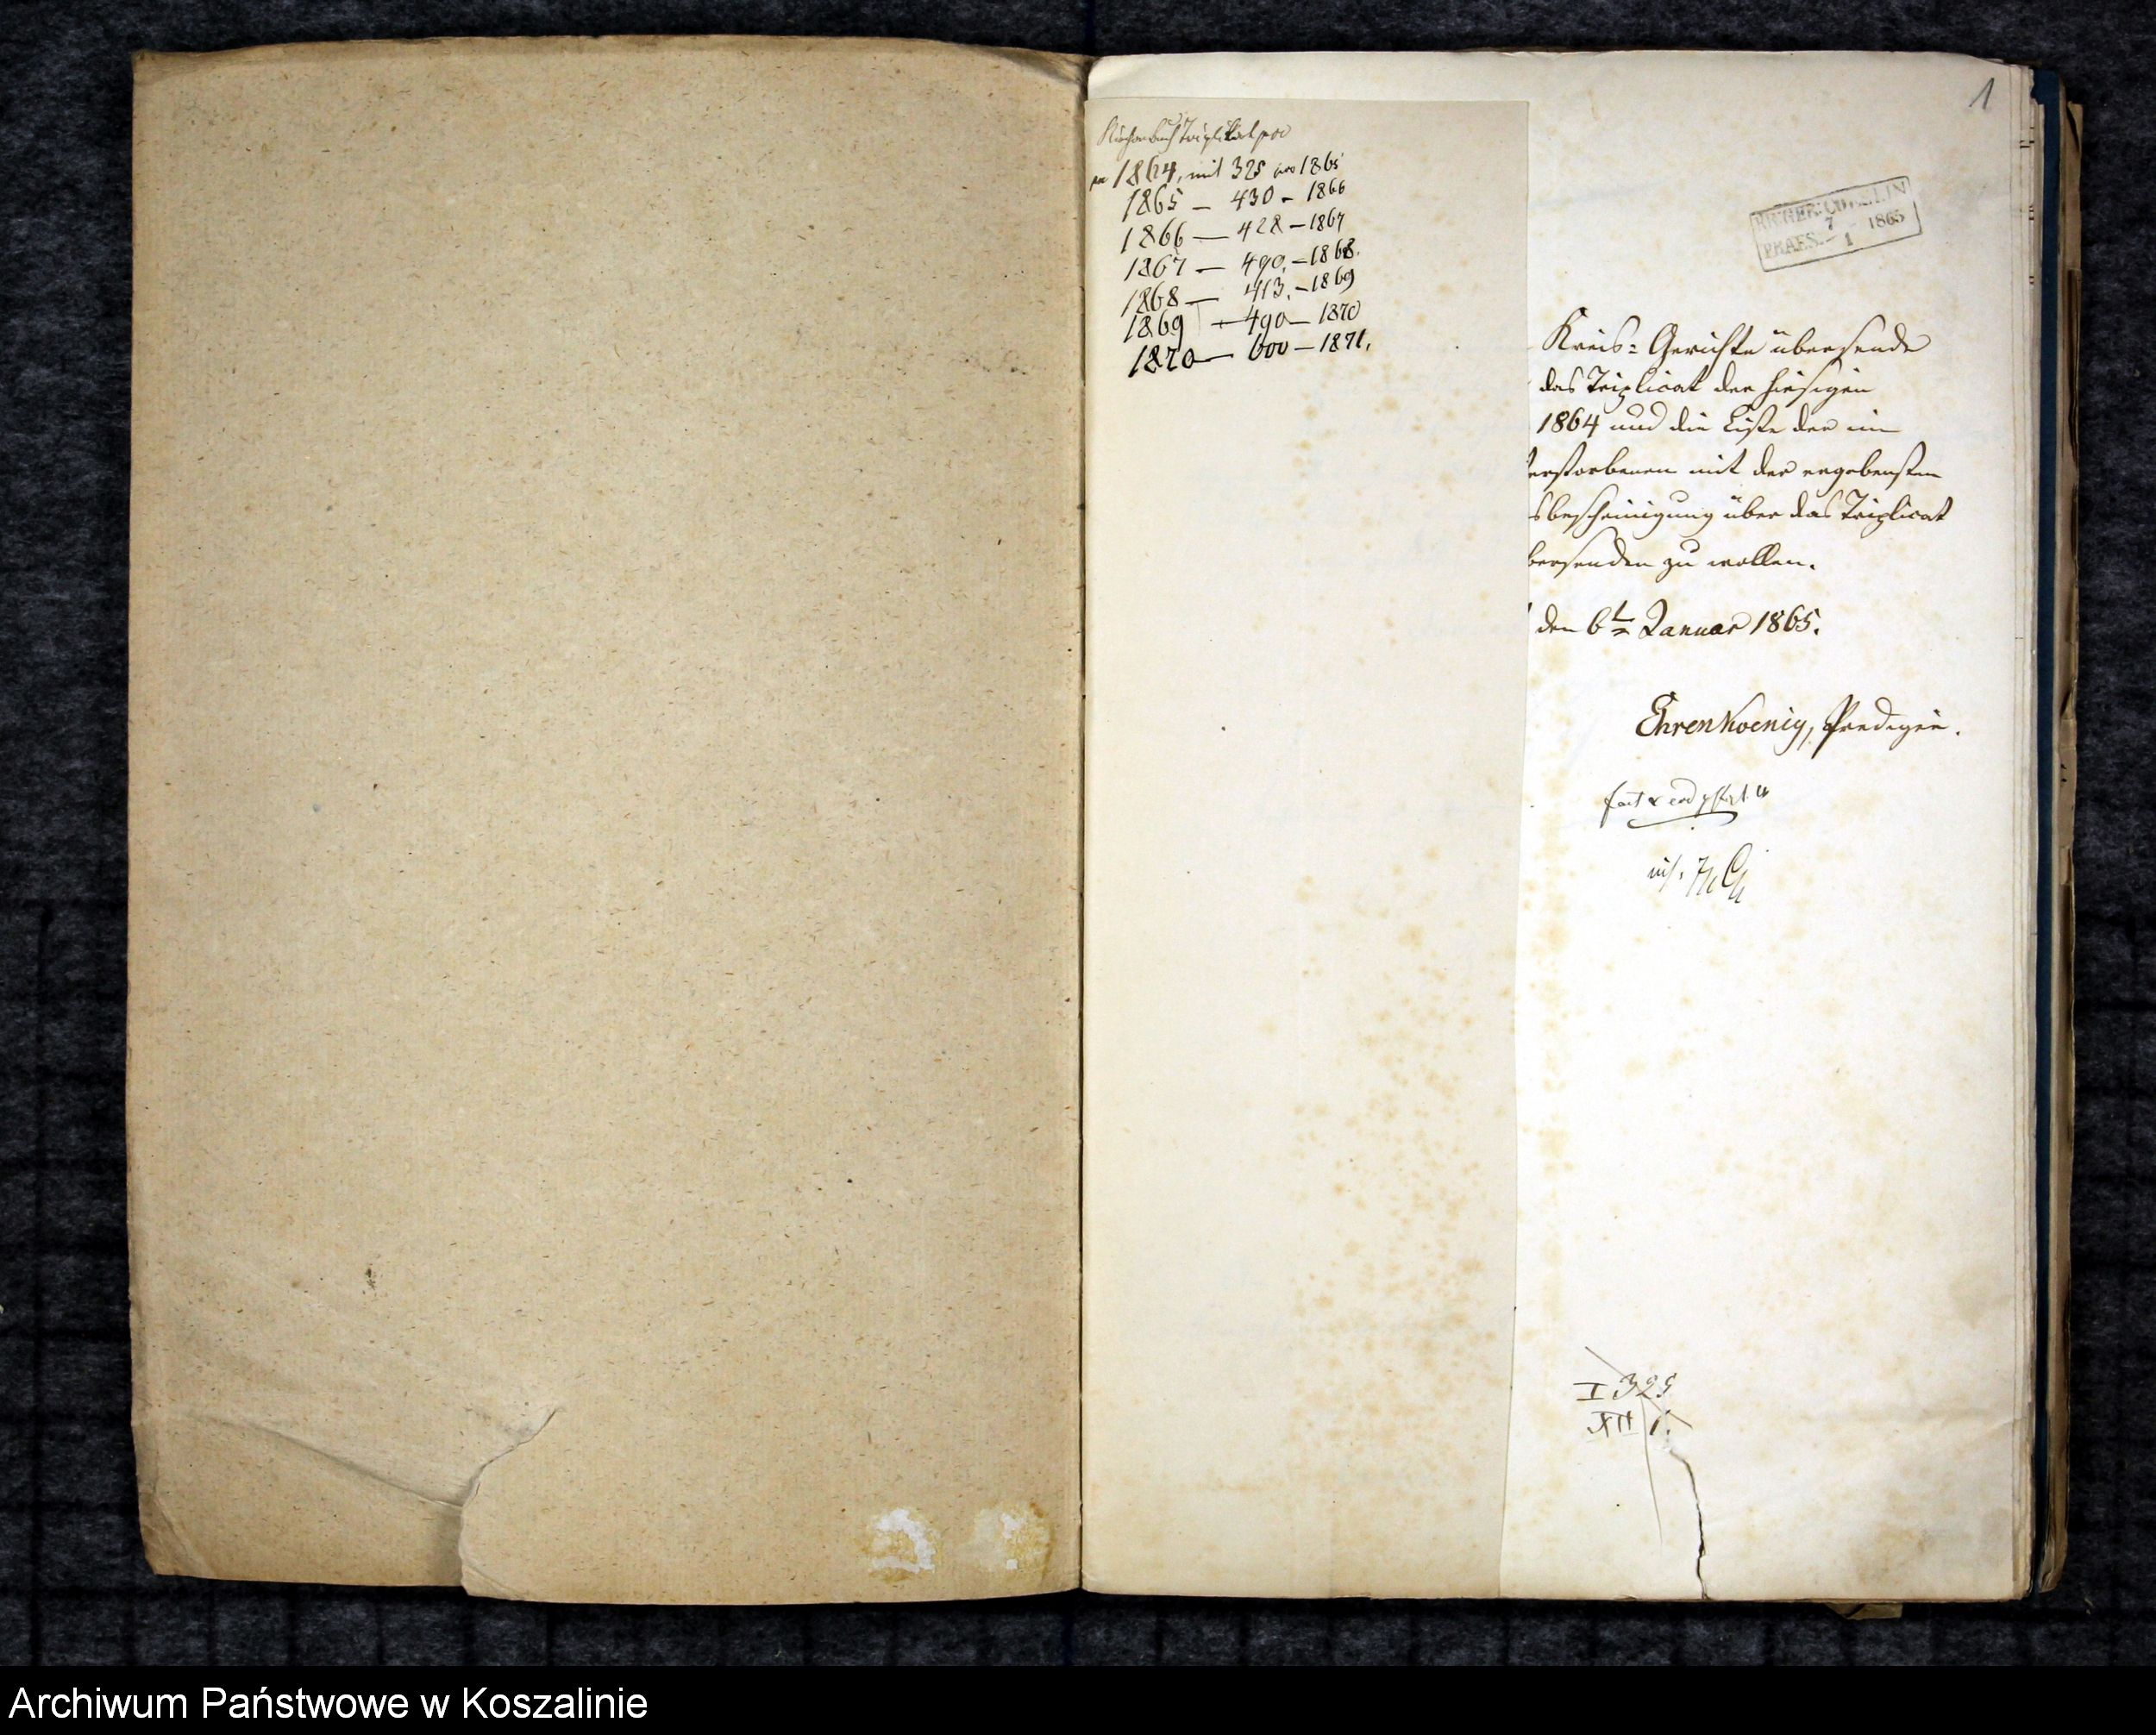 Kirchenbuch Triplikat pro
pro 1864, mit 325 pro 1865
1865 — 430 – 1866
1866 — 428 – 1867
1867 — 490. – 1868.
1868 — 413. – 1869
1869 — 490 — 1870
1870 — 600 — 1871.
1
KR:GER: CÖSLIN
PRAES. 7 1 1865
Kreis= Gerichte übersende
das Triplicat der hiesigen
1864 und die Liste der im
erstorbenen mit der ergebensten
sbescheinigung über das Triplicat
bersenden zu wollen.
den 6t Januar 1865.
Ehrenkoenig, Prediger.
I 325
XII 1.
Archiwum Państwowe w Koszalinie